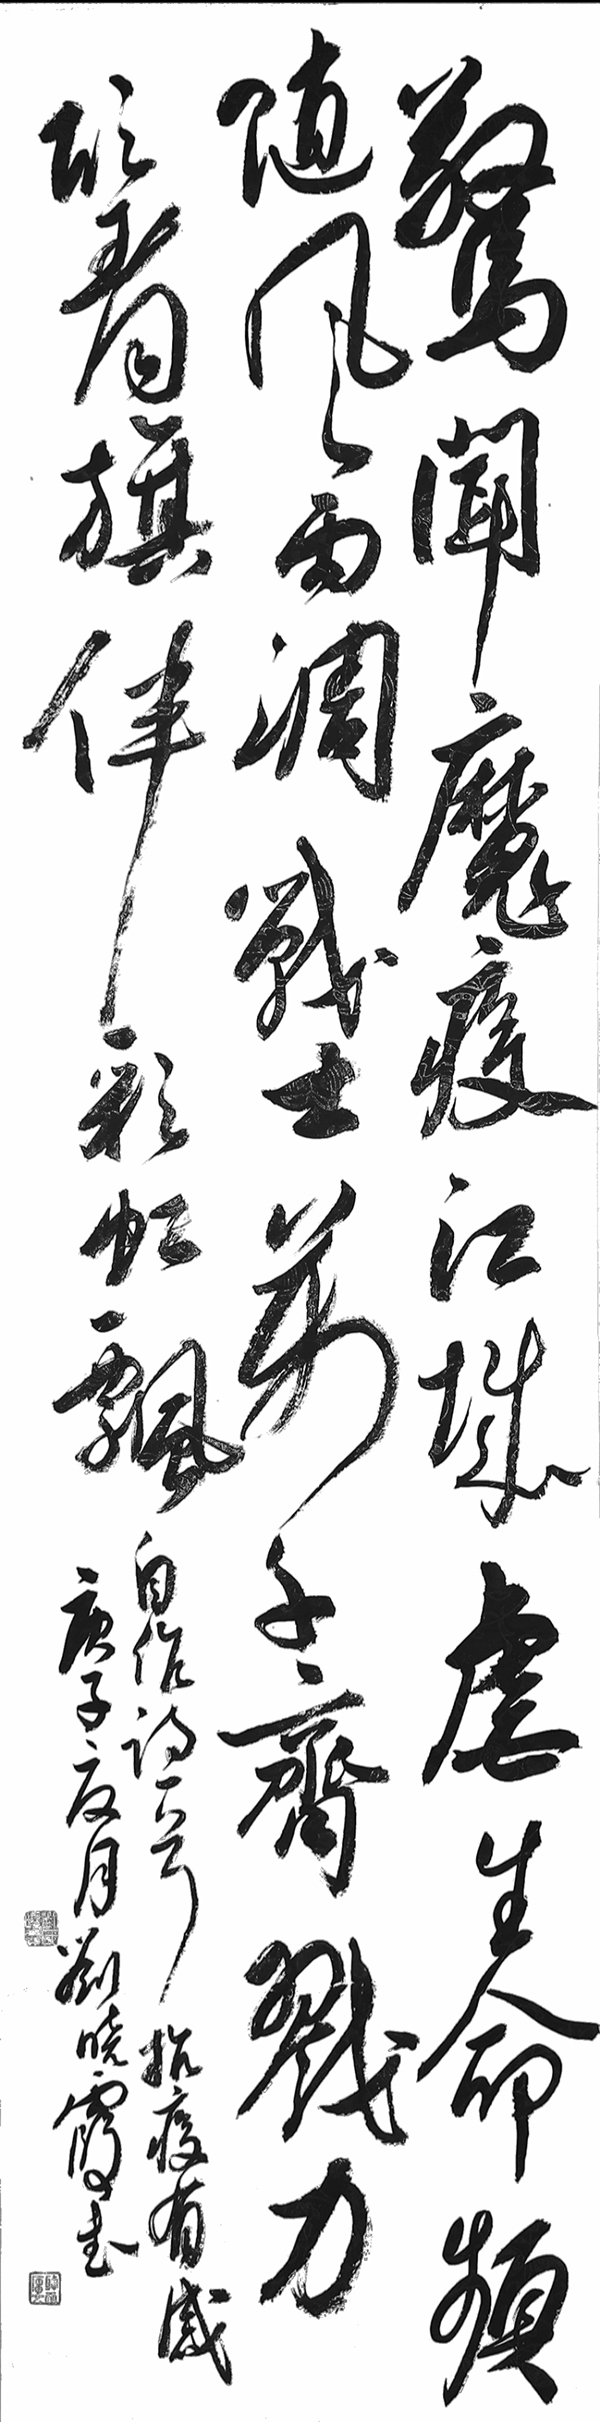 驚聞魔疫江城虐生命頻
隨風雨凋戰士万千齊戮力
欣看旗伴彩虹飄
自作詩一首抗疫有感
庚子夏月劉曉霞书